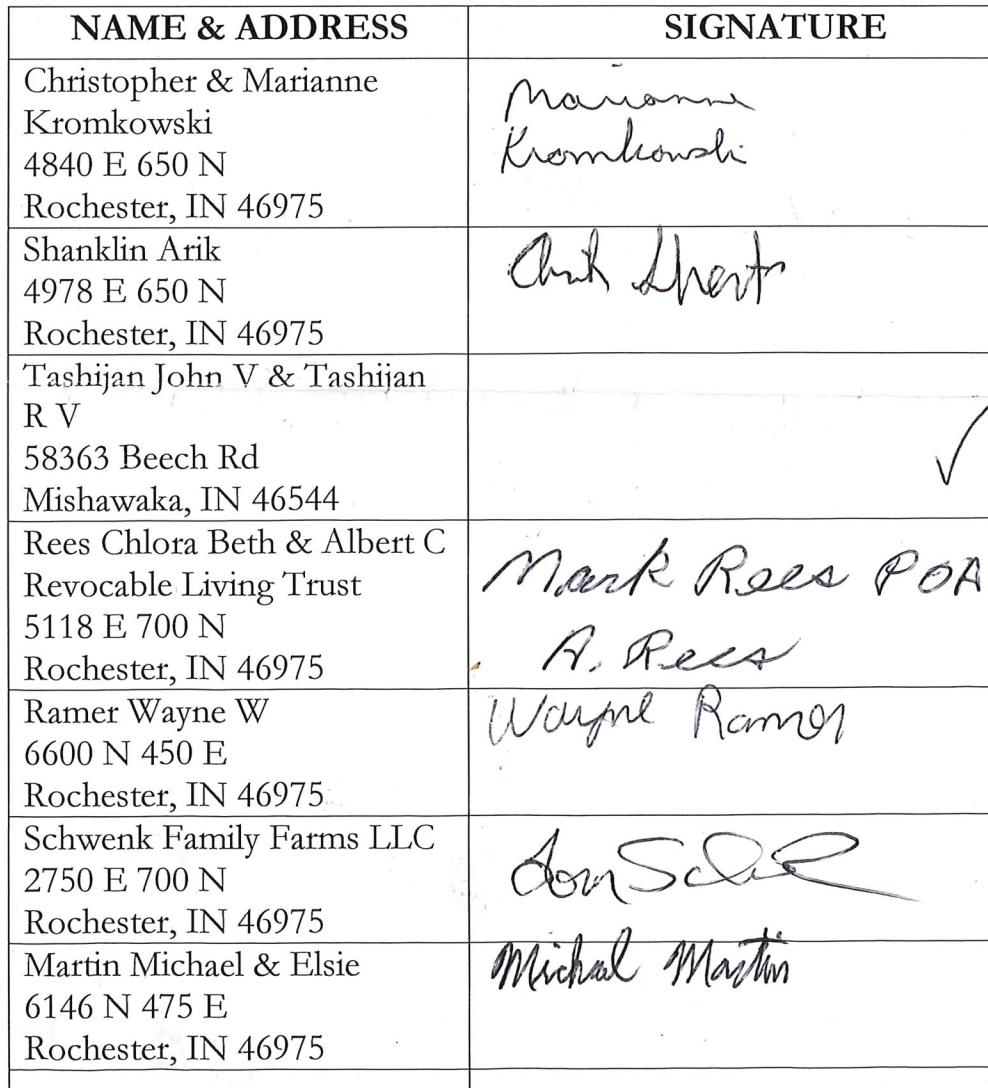 NAME & ADDRESS
SIGNATURE
Christopher & Marianne
Kromkowski
4840 E 650 N
Rochester, IN 46975
Marianne
Kromkowski
Shanklin Arik
4978 E 650 N
Rochester, IN 46975
Tashijan John V & Tashijan
R V
58363 Beech Rd
Mishawaka, IN 46544
Rees Chlora Beth & Albert C
Revocable Living Trust
5118 E 700 N
Rochester, IN 46975
Mark Rees POA
A. Rees
Ramer Wayne W
6600 N 450 E
Rochester, IN 46975
Wayne Ramer
Schwenk Family Farms LLC
2750 E 700 N
Rochester, IN 46975
Martin Michael & Elsie
6146 N 475 E
Rochester, IN 46975
Michael Martin